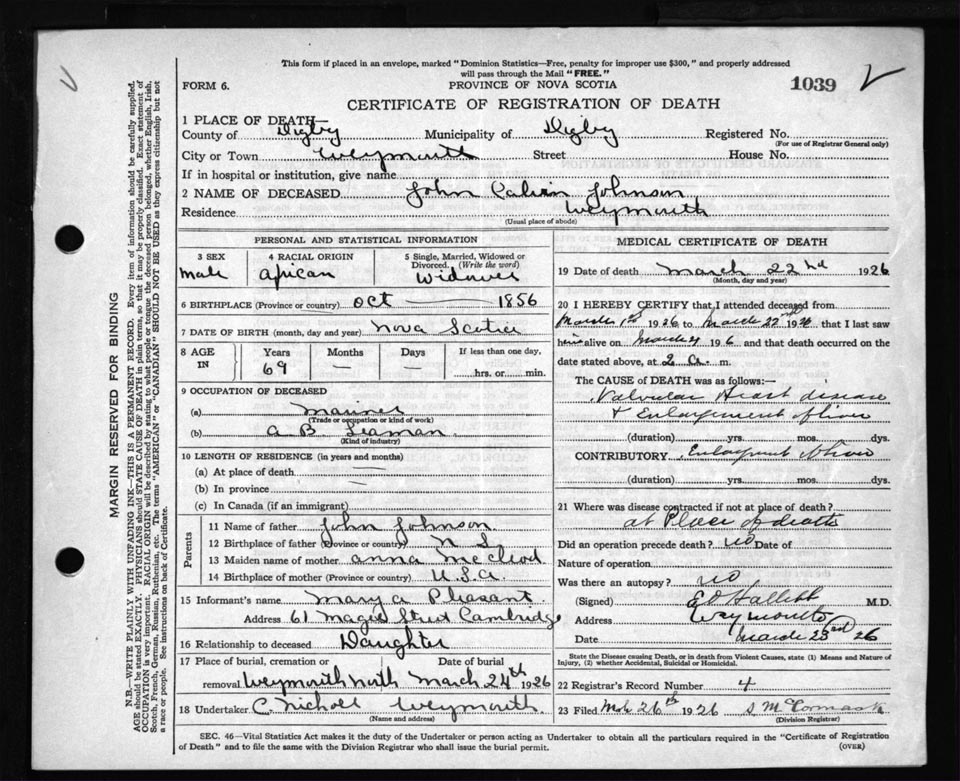 This form if placed in an envelope, marked "Dominion Statistics—Free, penalty for improper use $300," and properly addressed
will pass through the Mail "FREE."
FORM 6. PROVINCE OF NOVA SCOTIA 1039
CERTIFICATE OF REGISTRATION OF DEATH
1 PLACE OF DEATH—
County of Digby Municipality of Digby Registered No.
(For use of Registrar General only)
City or Town Weymouth Street House No.
If in hospital or institution, give name
2 NAME OF DECEASED John Calvin Johnson
Residence Weymouth
(Usual place of abode)
PERSONAL AND STATISTICAL INFORMATION
3 SEX 4 RACIAL ORIGIN 5 Single, Married, Widowed or
Divorced. (Write the word)
male african Widower
6 BIRTHPLACE (Province or country) Oct — 1856
7 DATE OF BIRTH (month, day and year) Nova Scotia
8 AGE IN Years Months Days If less than one day,
69 — — hrs. or min.
9 OCCUPATION OF DECEASED
(a) Mariner
(Trade or occupation or kind of work)
(b) A B Seaman
(Kind of industry)
10 LENGTH OF RESIDENCE (in years and months)
(a) At place of death —
(b) In province —
(c) In Canada (if an immigrant)
Parents
11 Name of father John Johnson
12 Birthplace of father (Province or country) N S.
13 Maiden name of mother anna McLeod
14 Birthplace of mother (Province or country) U.S.a.
15 Informant's name Mary a Pleasant
Address 61 Street Cambridge
16 Relationship to deceased Daughter
17 Place of burial, cremation or Date of burial
removal Weymouth North March 24th 1926
18 Undertaker C. Nichols Weymouth
(Name and address)
MEDICAL CERTIFICATE OF DEATH
19 Date of death March 22nd 1926
(Month, day and year)
20 I HEREBY CERTIFY that I attended deceased from
March 1st 1926 to March 22nd 1926 that I last saw
him alive on March 1926 and that death occurred on the
date stated above, at 2 a. m.
The CAUSE of DEATH was as follows:—
Valvular Heart disease
& Enlargement of liver
(duration) yrs. mos. dys.
CONTRIBUTORY Enlargement of liver
(duration) yrs. mos. dys.
21 Where was disease contracted if not at place of death?
at Place of death
Did an operation precede death? no Date of
Nature of operation
Was there an autopsy? no
(Signed) M.D.
Address Weymouth
Date March 23rd 26
State the Disease causing Death, or in death from Violent Causes, state (1) Means and Nature of
Injury, (2) whether Accidental, Suicidal or Homicidal.
22 Registrar's Record Number 4
23 Filed Mch 26th 1926 S McCormack
(Division Registrar)
SEC. 46—Vital Statistics Act makes it the duty of the Undertaker or person acting as Undertaker to obtain all the particulars required in the "Certificate of Registration
of Death" and to file the same with the Division Registrar who shall issue the burial permit. (OVER)
MARGIN RESERVED FOR BINDING
N.B.—WRITE PLAINLY WITH UNFADING INK—THIS IS A PERMANENT RECORD. Every item of information should be carefully supplied.
AGE should be stated EXACTLY. PHYSICIANS should STATE CAUSE OF DEATH in plain terms, so that it may be properly classified. Exact statement of
OCCUPATION is very important. RACIAL ORIGIN will be described by stating to what people or tongue the deceased person belonged, whether English, Irish,
Scotch, French, German, Russian, Ruthenian, etc. The terms "AMERICAN" or "CANADIAN" SHOULD NOT BE USED as they express citizenship but not
a race or people. See instructions on back of Certificate.